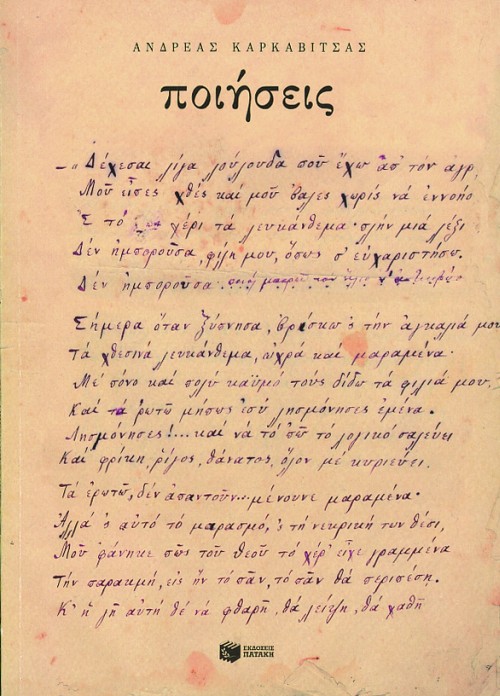 ΑΝΔΡΕΑΣ ΚΑΡΚΑΒΙΤΣΑΣ
ποιήσεις
— „ Δέχεσαι λίγα λούλουδα ποῦ ἔχω ἀπ' τὸν ἀγρ
Μοῦ εἶπες χθές καί μοῦ βαλες χωρίς νά ἐννοηθῶ
Σ τό χέρι τά λευκάνθεμα· πλήν μιά λέξι
Δέν ἠμποροῦσα, φίλη μου, ὅπως σ' εὐχαριστήσω.
Δέν ἠμποροῦσα
Σήμερα ὅταν ξύπνησα, βρίσκω 'ς τήν ἀγκαλιά μου
Τά χθεσινά λευκάνθεμα, ὠχρά καί μαραμένα·
Μέ πόνο καί πολύ καϋμό τούς δίδω τά φιλιά μου,
Καί τά ἐρωτῶ μήπως ἐσύ λησμόνησες ἐμένα.
Λησμόνησες!... καί νά τό 'πῶ τό λογικό σαλεύει
Καί φρίκη, ῥῖγος, θάνατος, ὅλον μέ κυριεύει.
Τά ἐρωτῶ, δέν ἀπαντοῦν... μένουνε μαραμένα·
Ἀλλά 'ς αὐτό τό μαρασμό, 'ς τή νεκρική των θέσι,
Μοῦ φάνηκε πῶς τοῦ θεοῦ τό χέρ' εἶχε γραμμένα
Τήν παρακμή, εἰς ἥν τό πᾶν, τό πᾶν θά περιπέση.
Κ' ἡ γῆ αὐτή θέ νά φθαρῆ, θά λείψη, θά χαθῆ
ΕΚΔΟΣΕΙΣ
ΠΑΤΑΚΗ